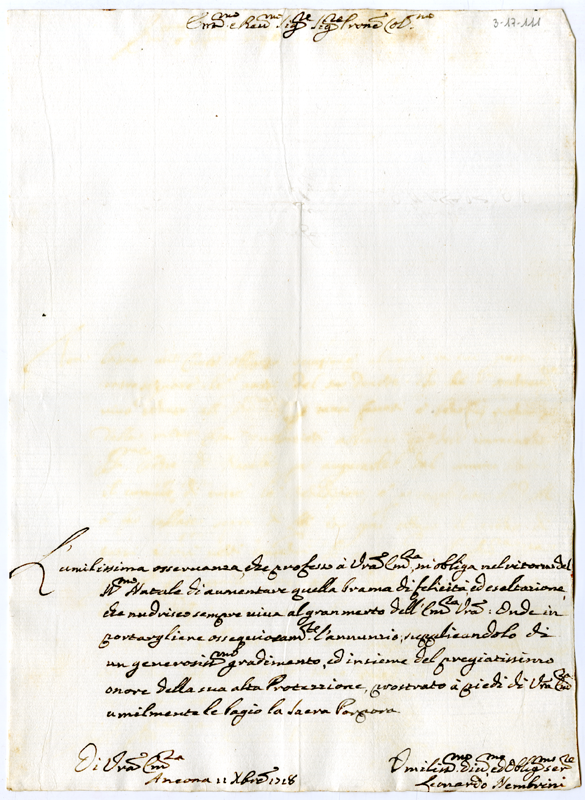 3-17-111
Em.mo e Reu.mo Sig.re Sig.re Prone Col.mo
L'umilissima osseruanza, che professo à Vra Em.za, mi obliga nel ritorno del
SS.mo Natale di aumentare quella brama di felicità, ed esaltazione,
che nudrisco sempre uiua al gran merto dell'Em.za Vra: Onde in
portargliene ossequiosam.te l'annunzio, supplicandolo di
un generosiss.mo gradimento, ed insieme del pregiatissimo
onore della sua alta Protezzione, prostrato à piedi di Vra Em.za
umilmente le bagio la Sacra Porpora.
Di Vra Em.za
Ancona 11 Xbre 1718
Vmiliss.mo Diu.mo ed Oblig.mo Ser.re
Leonardo Nembrini